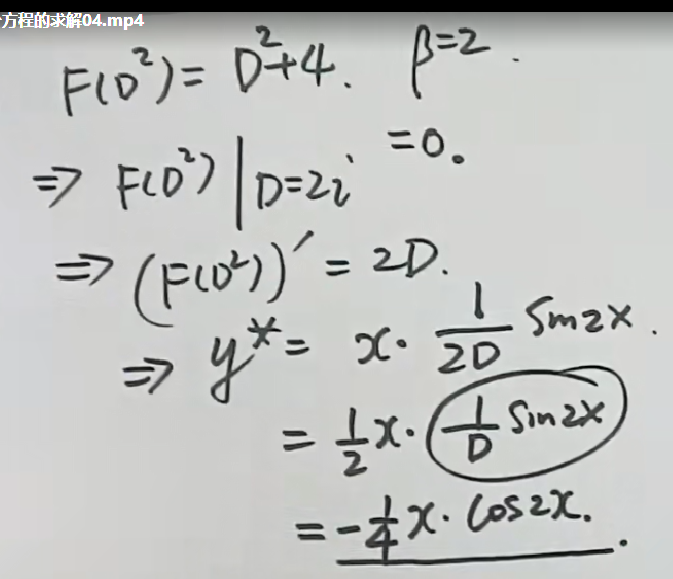 方程的求解04.mp4
F(D²) = D²+4. β=2.
⇒ F(D²)|D=2i =0。
⇒ (F(D²))′ = 2D.
⇒ y* = x· 1/2D sin2x.
= 1/2 x· 1/D sin2x
= -1/4 x· cos2x.